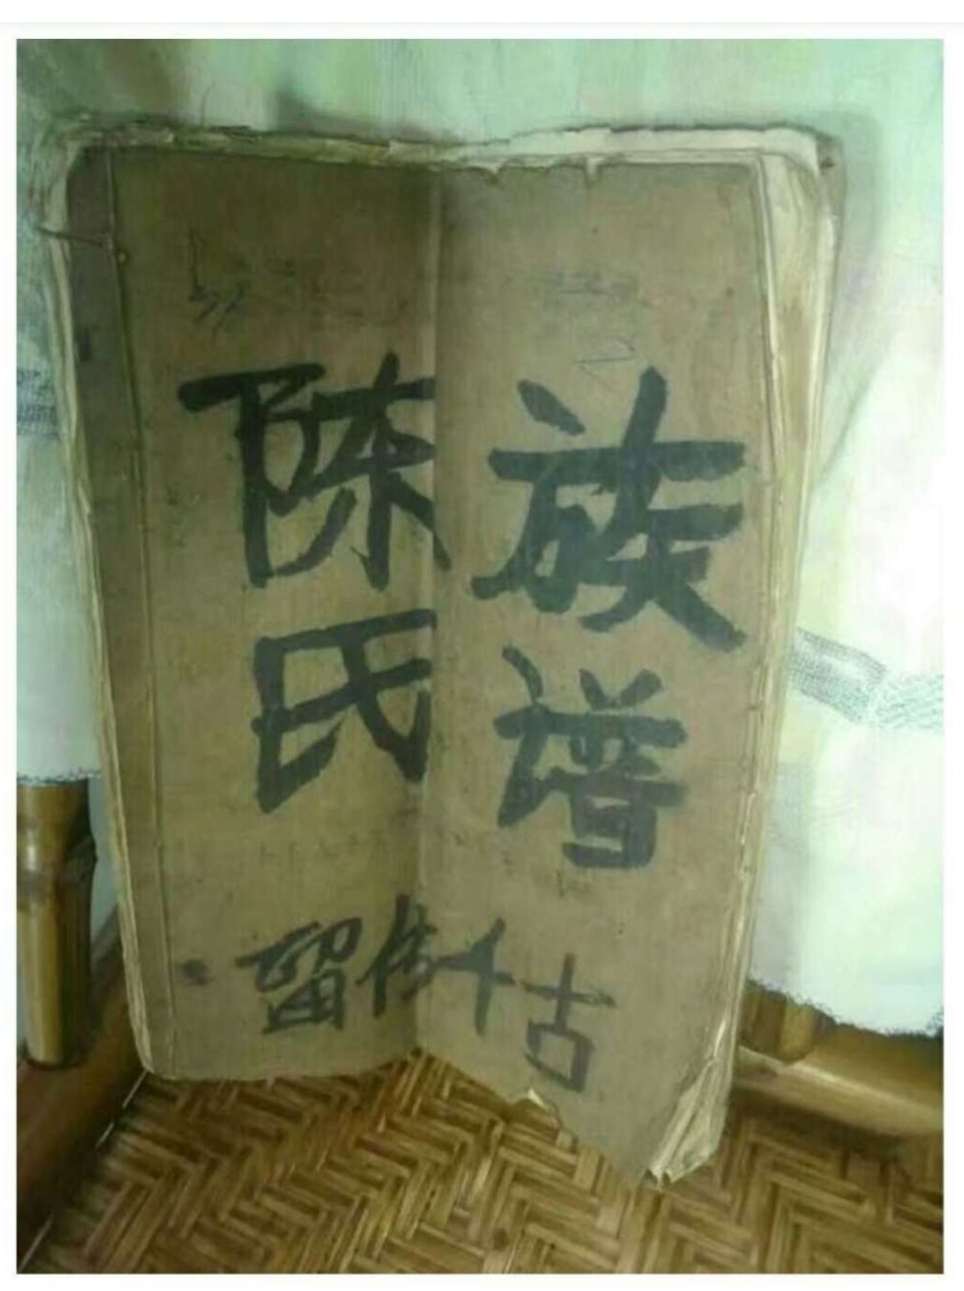 陈氏
族谱
留传千古